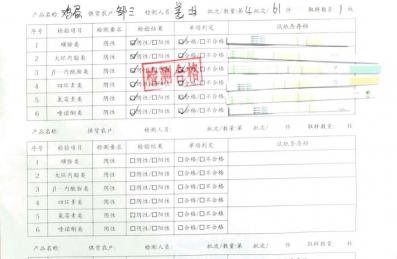 产品名称: 鸡蛋 供货农户: 邹三 检测人员: 批次/数量:第4批次/61件 取样数量: 1 枚
序号 检验项目 检测要求 检验结果 单项判定 试纸条存档
1 磺胺类 阴性 ☑阴性/☐阳性 ☑合格/☐不合格
2 大环内酯类 阴性 ☑阴性/☐阳性 ☑合格/☐不合格
3 β-内酰胺类 阴性 ☑阴性/☐阳性 ☑合格/☐不合格
4 四环素类 阴性 ☑阴性/☐阳性 ☑合格/☐不合格
5 氟苯素类 阴性 ☑阴性/☐阳性 ☑合格/☐不合格
6 喹诺酮类 阴性 ☑阴性/☐阳性 ☑合格/☐不合格
检测合格
产品名称: 供货农户: 检测人员: 批次/数量:第 批次/ 件 取样数量: 枚
序号 检验项目 检测要求 检验结果 单项判定 试纸条存档
1 磺胺类 阴性 ☐阴性/☐阳性 ☐合格/☐不合格
2 大环内酯类 阴性 ☐阴性/☐阳性 ☐合格/☐不合格
3 β-内酰胺类 阴性 ☐阴性/☐阳性 ☐合格/☐不合格
4 四环素类 阴性 ☐阴性/☐阳性 ☐合格/☐不合格
5 氟苯素类 阴性 ☐阴性/☐阳性 ☐合格/☐不合格
6 喹诺酮类 阴性 ☐阴性/☐阳性 ☐合格/☐不合格
产品名称: 供货农户: 检测人员: 批次/数量:第 批次/ 件 取样数量: 枚